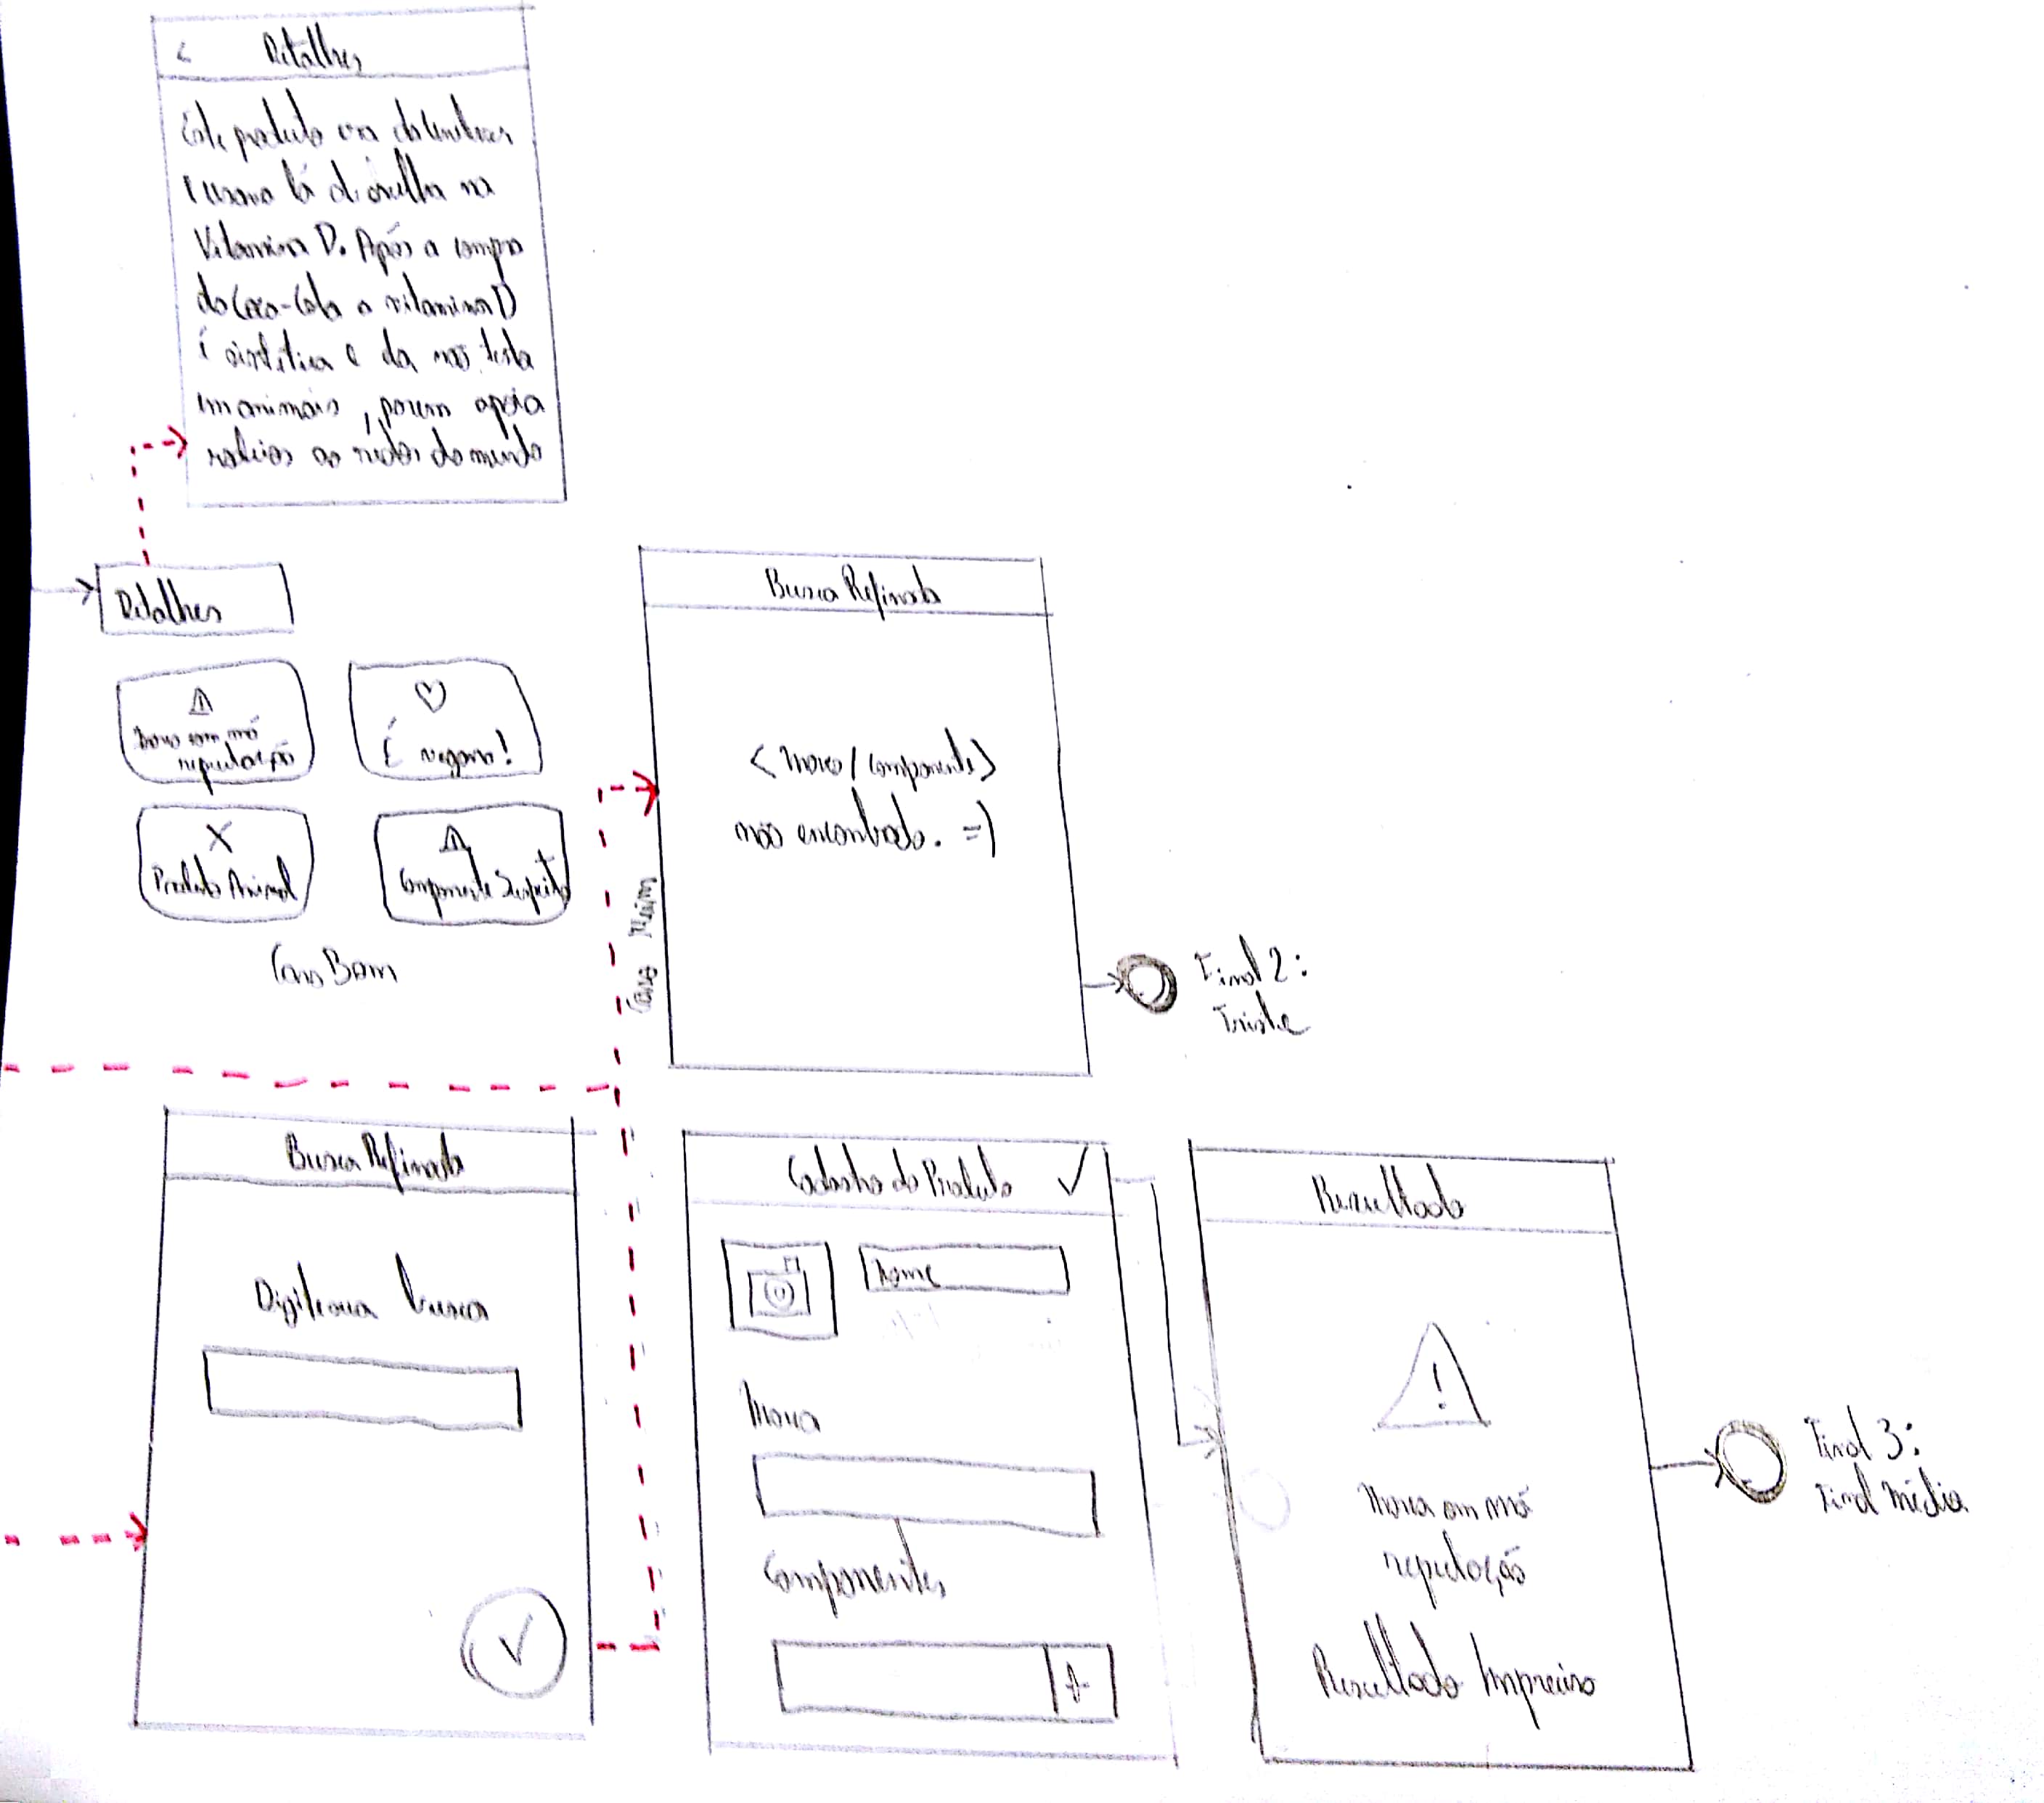 < Detalhes
Este produto era da Unilever
e usava lã de ovelha na
Vitamina D. Após a compra
da Coca-Cola a vitamina D
é sintética e ela não testa
em animais, porem apoia
rodeios ao redor do mundo
Detalhes
Marca com má
reputação
É vegano!
X
Produto Animal
Componente Suspeito
Caso Bom
Busca Refinada
<marca/componente>
não encontrado. =|
Caso Ruim
Final 2:
Triste
Busca Refinada
Digite sua busca
Cadastro do Produto
Nome
Marca
Componentes
+
Resultado
!
Marca em má
reputação
Resultado Impreciso
Final 3:
Final Médio